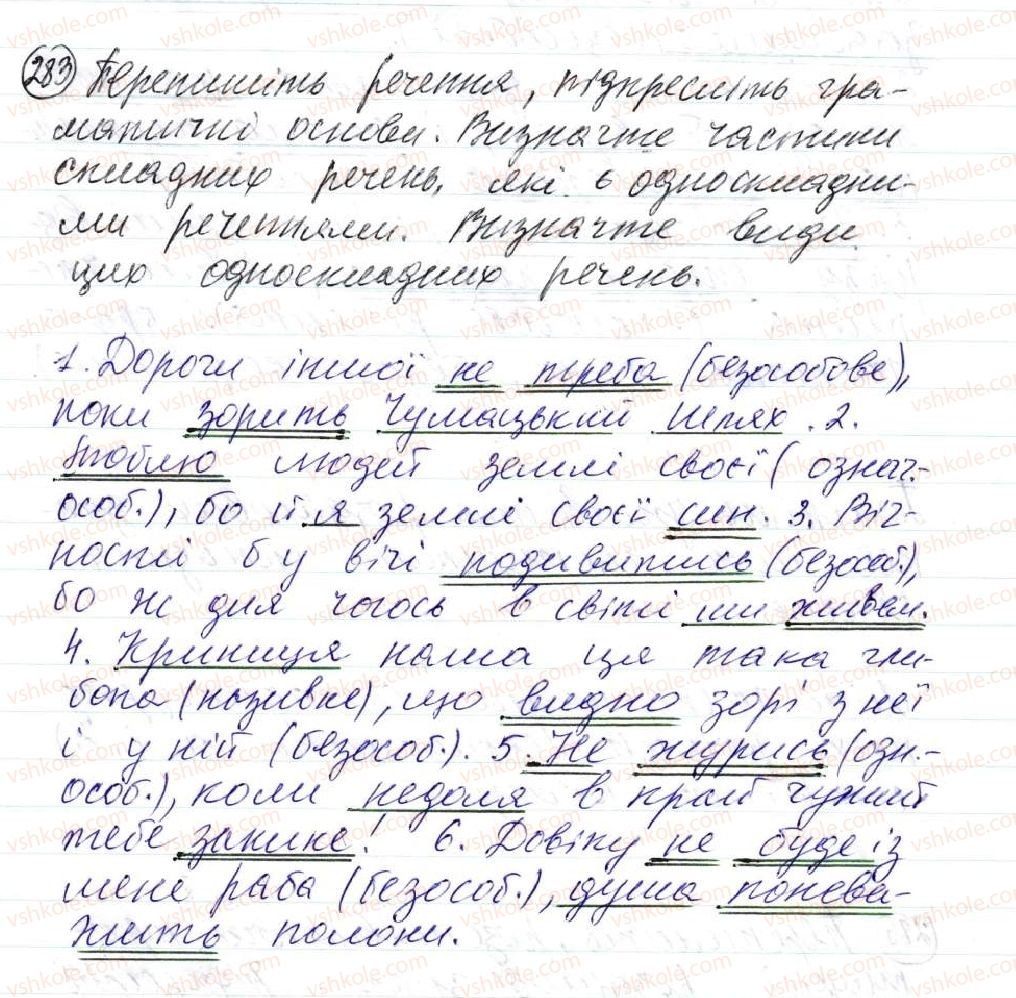 283 Перепишіть речення, підкресліть гра-
матичні основи. Визначте частини
складних речень, які є односкладни-
ми реченнями. Визначте види
цих односкладних речень.
1. Дороги іншої не треба (безособове),
поки зорить Чумацький Шлях. 2.
Люблю людей землі своєї (означ.-
особ.), бо й я землі своєї син. 3. Віч-
ності б у вічі подивитись (безособ.),
бо ж для чогось в світі ми живем.
4. Криниця наша ця така гли-
бока (називне), що видно зорі з неї
і у ній (безособ.). 5. Не журись (озн.-
особ.), коли недоля в край чужий
тебе закине! 6. Довіку не буде із
мене раба (безособ.), душа поневa-
жить полони.